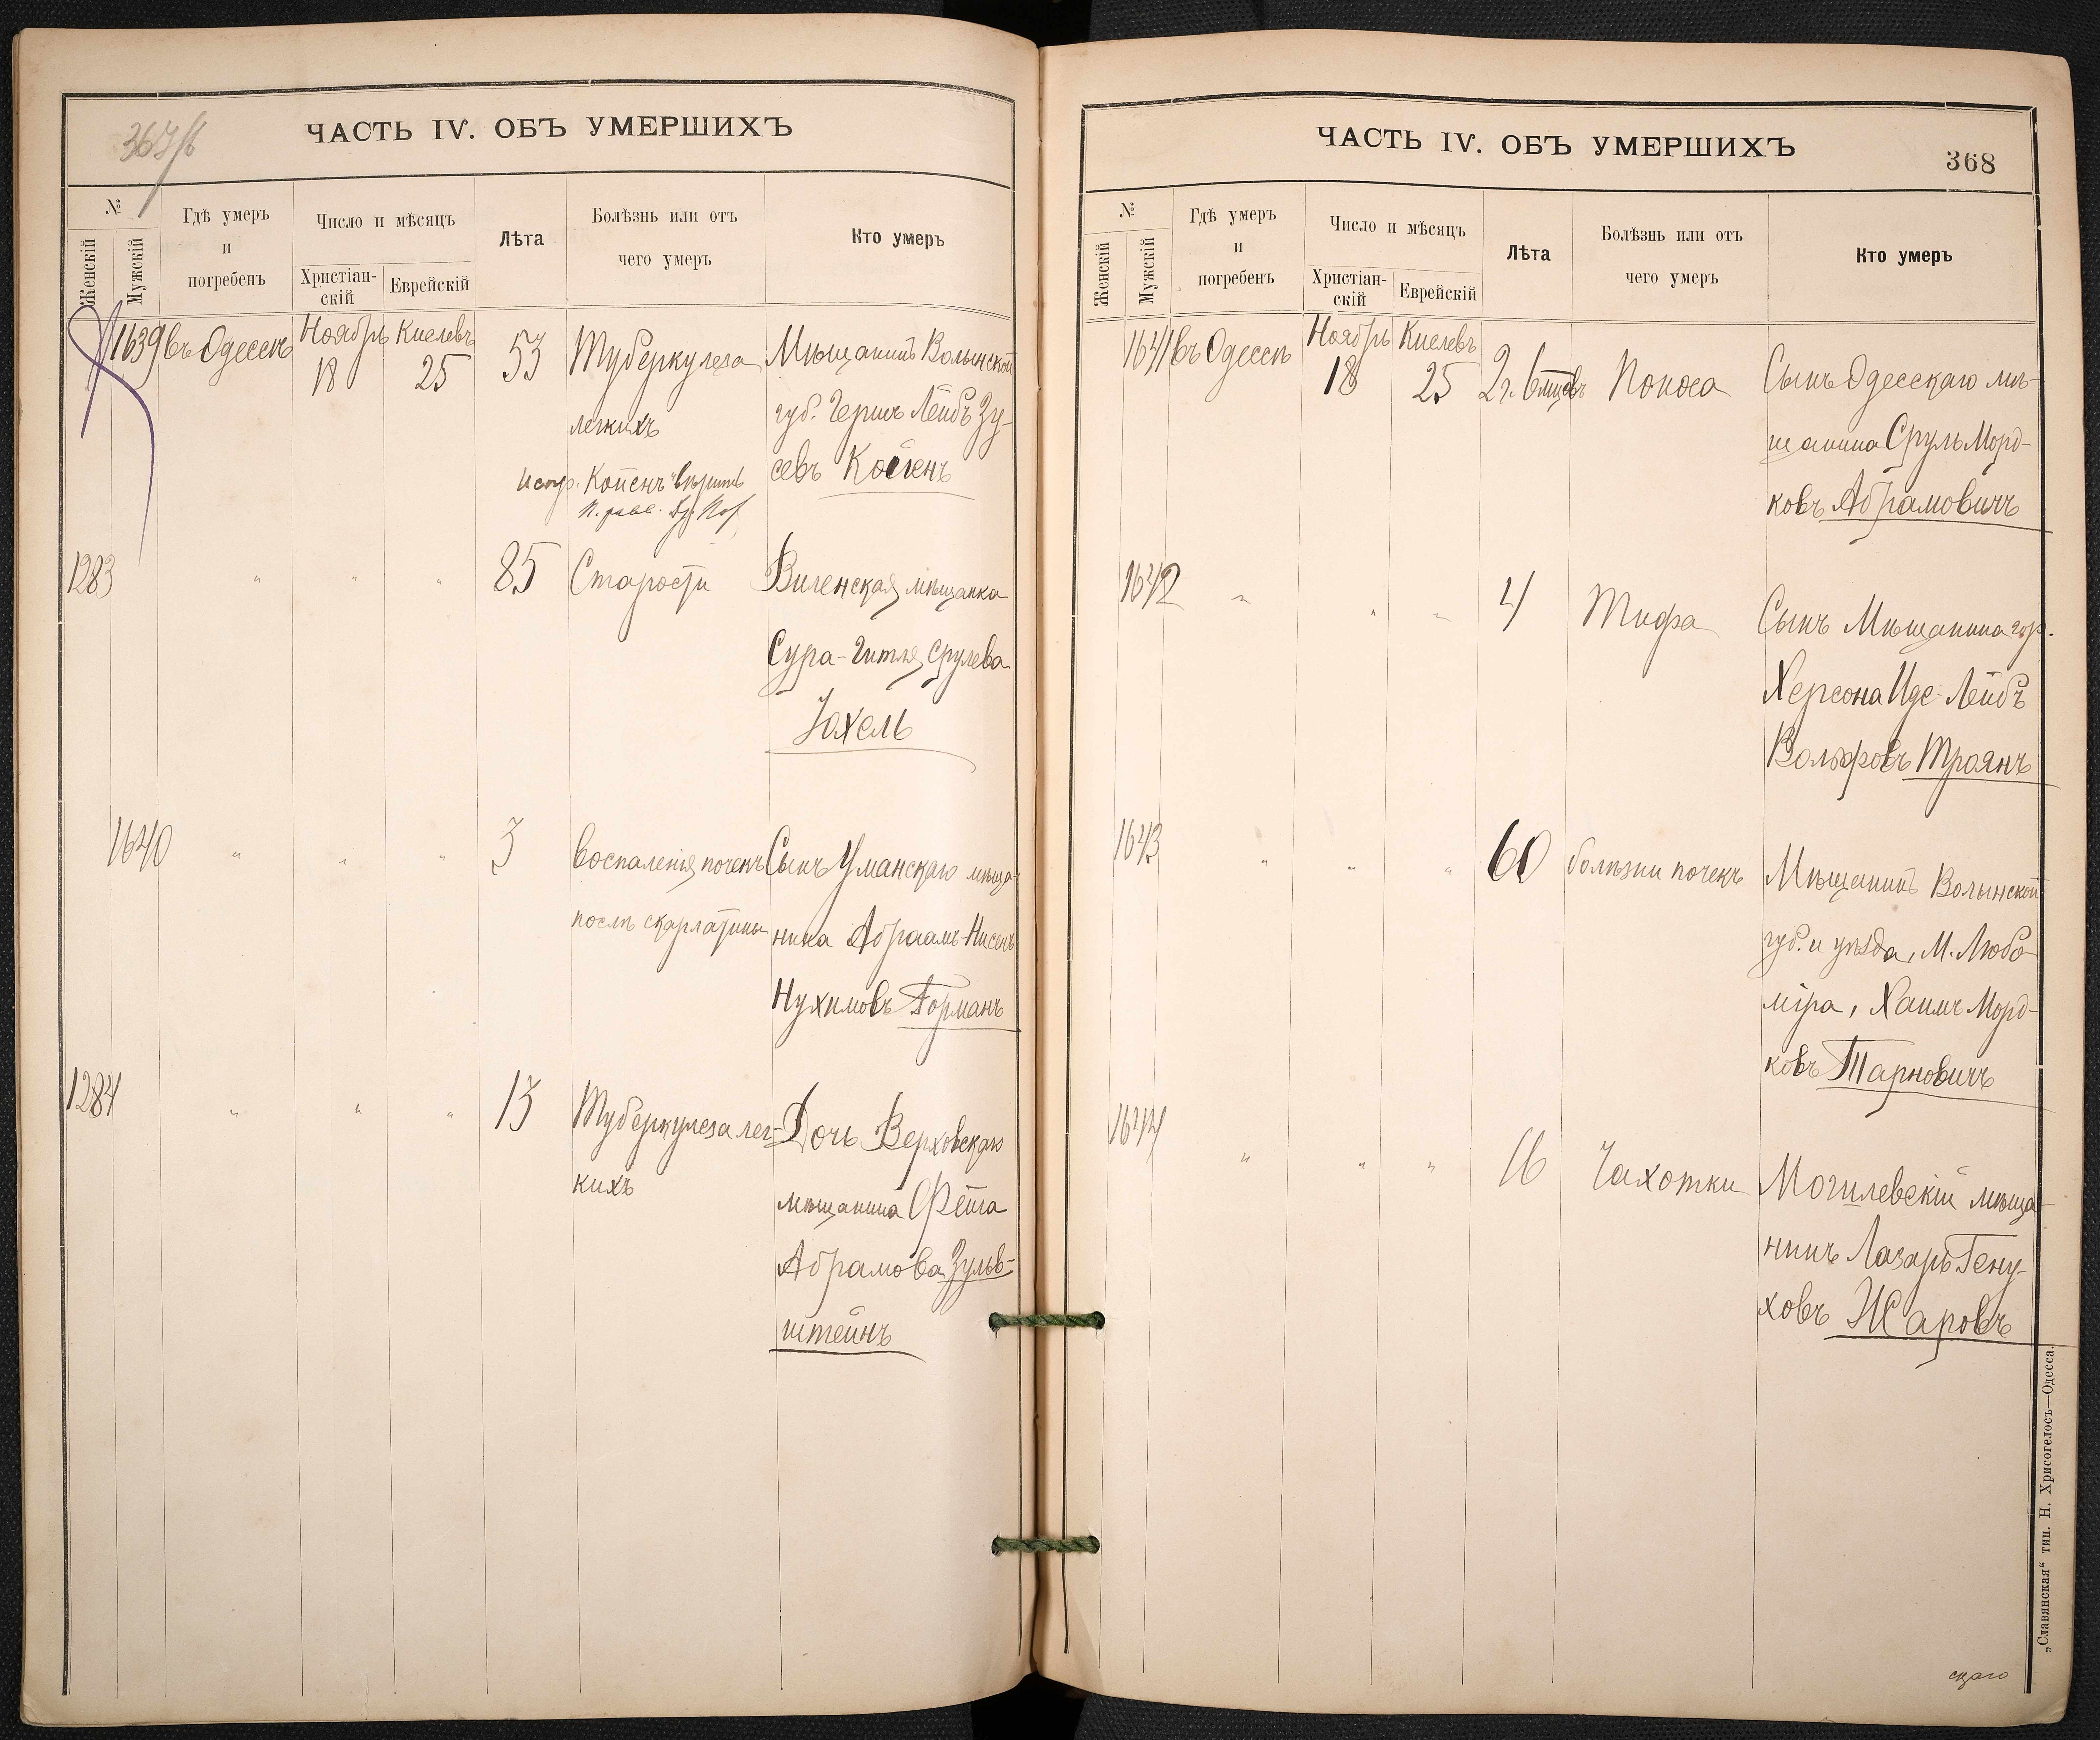 367/б
ЧАСТЬ IV. ОБЪ УМЕРШИХЪ
№
Женскій
Мужскій
Гдѣ умеръ
и
погребенъ
Число и мѣсяцъ
Христіан-
скій
Еврейскій
Лѣта
Болѣзнь или отъ
чего умеръ
Кто умеръ
1639 въ Одессѣ Ноябрь 18 Кислевъ 25 53 Туберкулеза Мѣщанинъ Волынской
легкихъ губ. Гершъ Лейбъ Зу-
севъ Койенъ
испр. Койенъ вѣрить
1283 " " " 85 Старости Виленская мѣщанка
Сура-Гитля Срулева
Іохель
1640 " " " 3 воспаленія почекъ Сынъ Уманскаго мѣща-
послѣ скарлатины нина Абраамъ-Нисенъ
Нухимовъ Горманъ
1284 " " " 13 Туберкулеза лег- Дочь Верховскаго
кихъ мѣщанина Фейга
Абрамова Зильб-
штейнъ
ЧАСТЬ IV. ОБЪ УМЕРШИХЪ
368
№
Женскій
Мужскій
Гдѣ умеръ
и
погребенъ
Число и мѣсяцъ
Христіан-
скій
Еврейскій
Лѣта
Болѣзнь или отъ
чего умеръ
Кто умеръ
1641 въ Одессѣ Ноябрь 18 Кислевъ 25 2 г. 6 мцевъ Поноса Сынъ Одесскаго мѣ-
щанина Сруль Морд-
ковъ Абрамовичъ
1642 " " " 4 Тифа Сынъ Мѣщанина гор.
Херсона Иде-Лейбъ
Вольфовъ Троянъ
1643 " " " 60 болѣзни почекъ Мѣщанинъ Волынской
губ. и уѣзда, М. Любо-
міра, Хаимъ Морд-
ковъ Тарновичъ
1644 " " " 16 Чахотки Могилевскій мѣща-
нинъ Лазарь Гену-
ховъ Жаровъ
скаго
„Славянская“ тип. Н. Хрисогелосъ—Одесса.